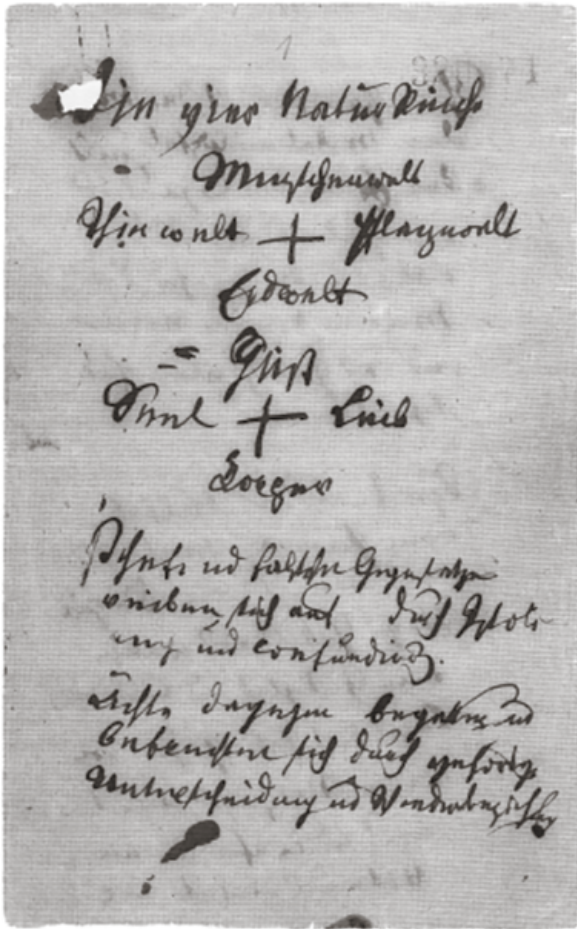 1
Die vier Natur Reiche
Menschenwelt
Thierwelt + Pflanzwelt
Erdwelt
= Geist
Seel + Leib
Körper
Schiefe und falsche Gegensätze
reiben sich auf durch
und
Ächte dagegen begatten und
befruchten sich durch gehörige
Unterscheidung und Wiederbeziehung